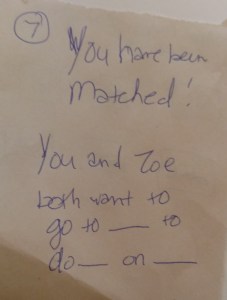 7
You have been
matched!
You and Zoe
both want to
go to ___ to
do ___ on ___